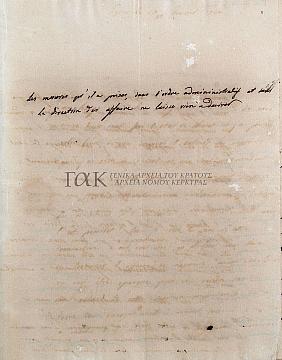 les mesures qu'il a prises, dans l'ordre administratif et
la direction des affaires ne laisse rien a desirer
ΓΑΚ ΓΕΝΙΚΑ ΑΡΧΕΙΑ ΤΟΥ ΚΡΑΤΟΥΣ
ΑΡΧΕΙΑ ΝΟΜΟΥ ΚΕΡΚΥΡΑΣ